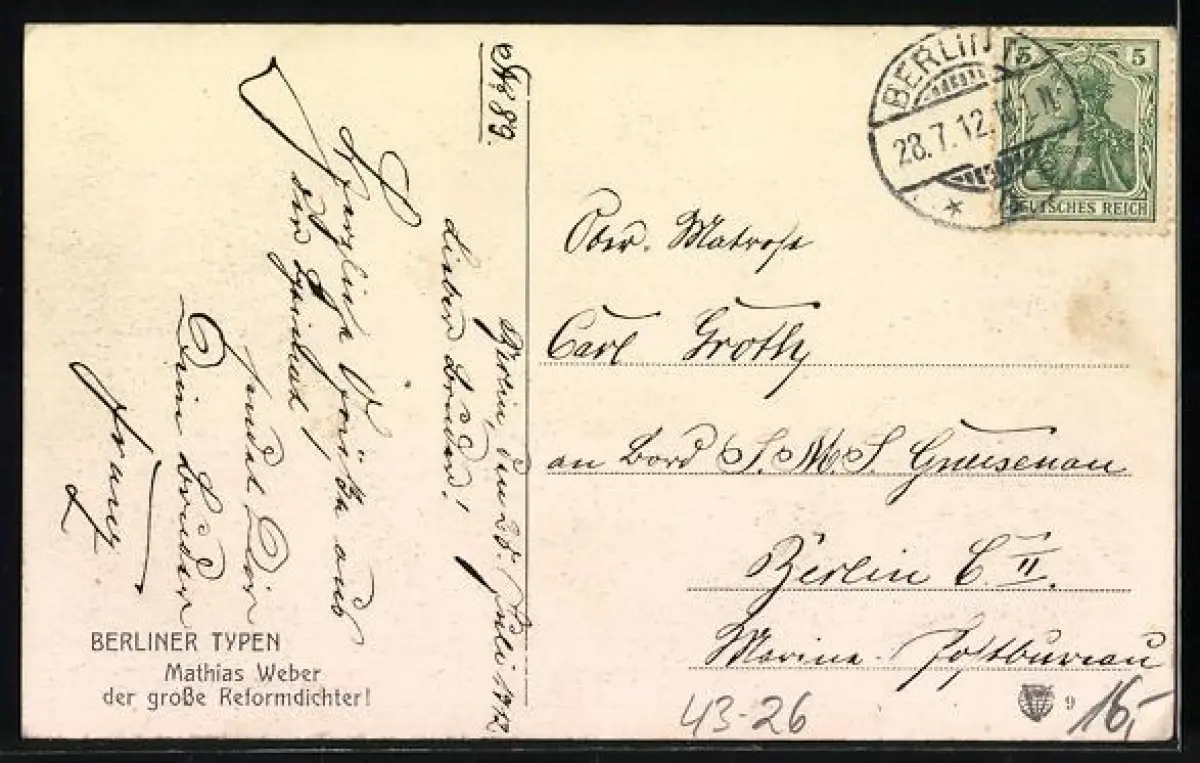 No 89.
Berlin, den 28. Juli 1912
Lieber Bruder!
Herzliche Grüße aus
der Heimat!
sendet Dir
Dein Bruder
Franz
BERLINER TYPEN
Mathias Weber
der große Reformdichter!
BERLIN
28.7.12.
5 5
DEUTSCHES REICH
Ober. Matrose
Carl Grothy
an Bord S.M.S. Gneisenau
Berlin C. II.
Marine-Postbureau
9
43-26
16,-